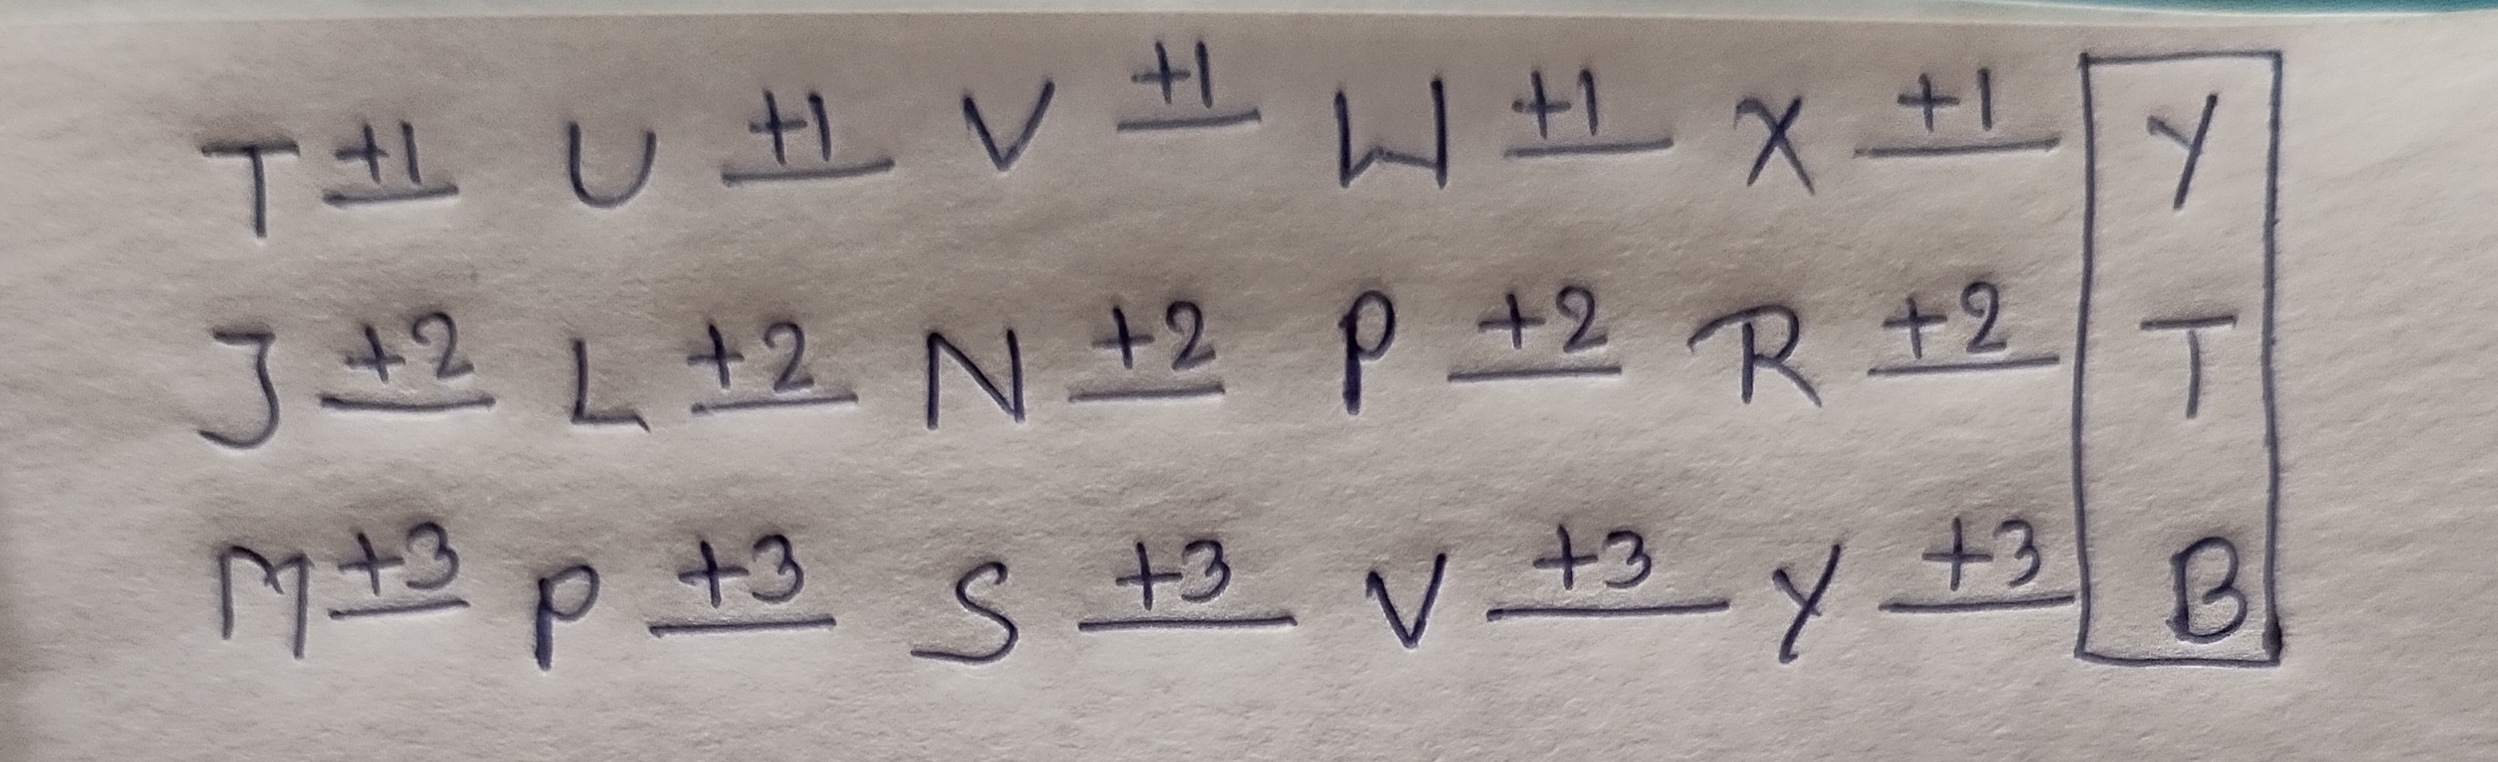 T +1 U +1 V +1 W +1 X +1 Y
J +2 L +2 N +2 P +2 R +2 T
M +3 P +3 S +3 V +3 Y +3 B